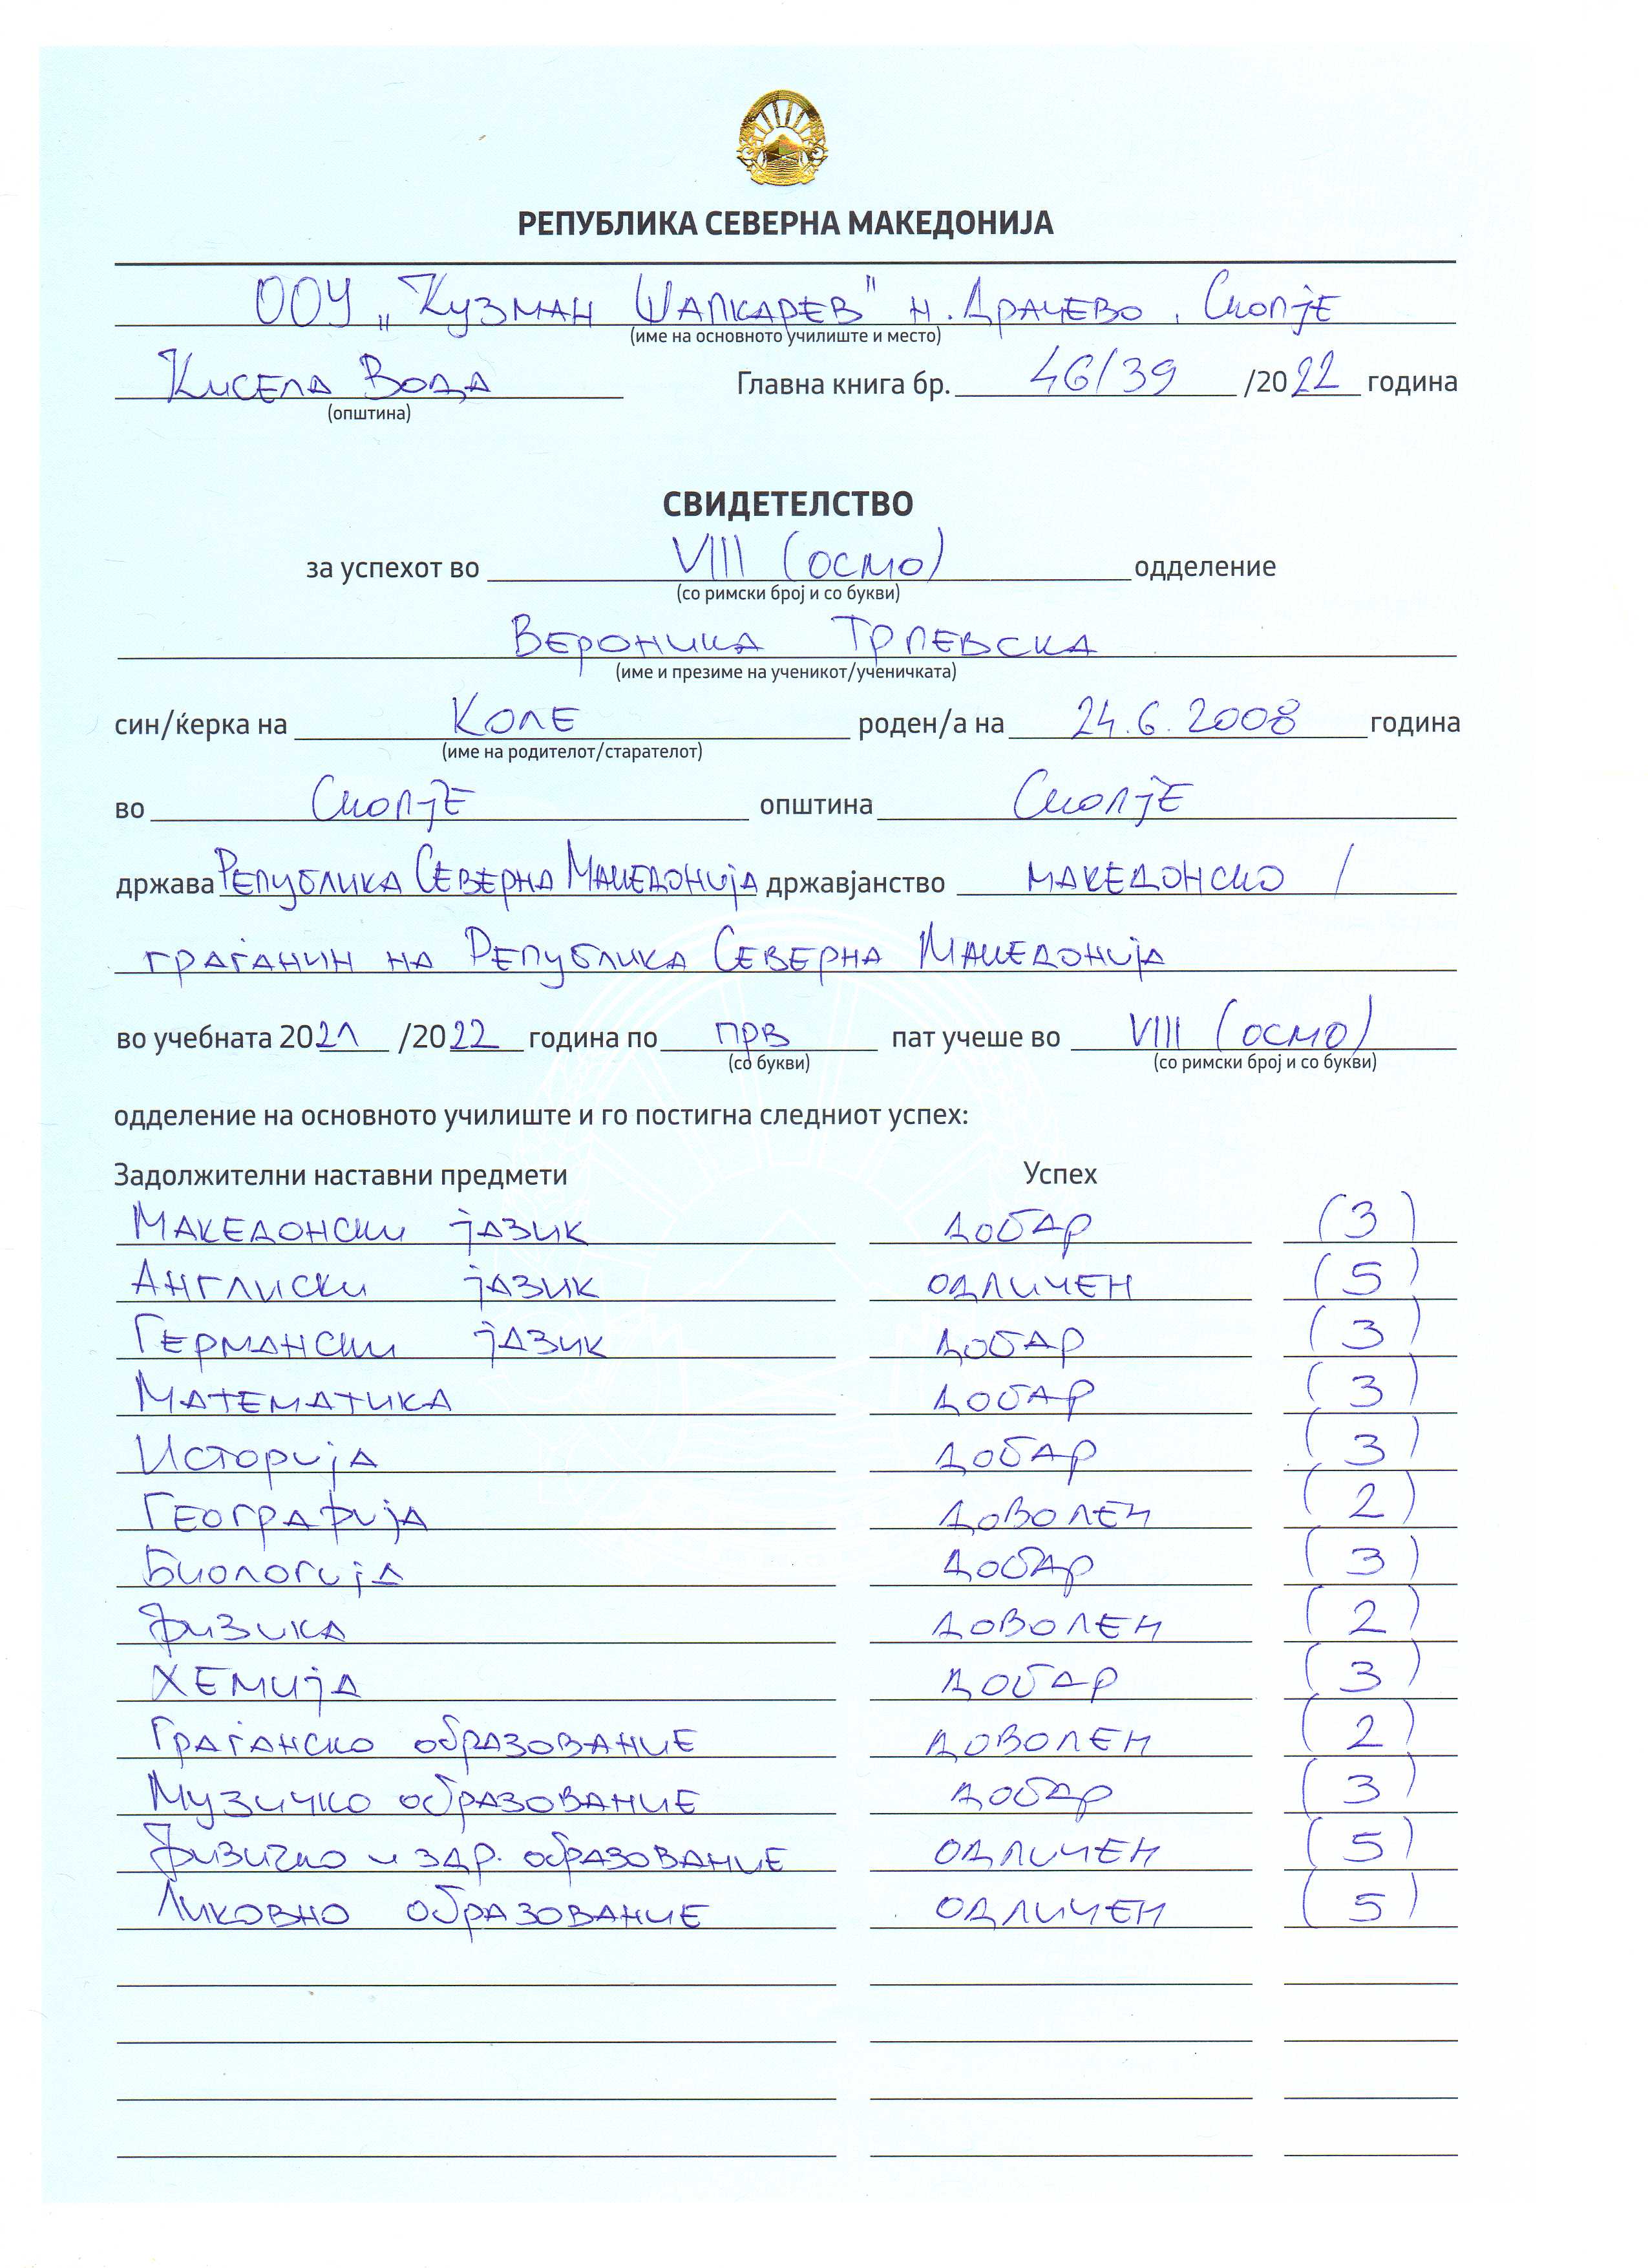 РЕПУБЛИКА СЕВЕРНА МАКЕДОНИЈА
ООУ „Кузман Шапкарев" н. Драчево, Скопје
(име на основното училиште и место)
Кисела Вода Главна книга бр. 46/39 /2022 година
(општина)
СВИДЕТЕЛСТВО
за успехот во VIII (осмо) одделение
(со римски број и со букви)
Вероника Трпевска
(име и презиме на ученикот/ученичката)
син/ќерка на Коле роден/а на 24.6.2008 година
(име на родителот/старателот)
во Скопје општина Скопје
држава Република Северна Македонија државјанство македонско /
граѓанин на Република Северна Македонија
во учебната 2021 /2022 година по прв пат учеше во VIII (осмо)
(со букви) (со римски број и со букви)
одделение на основното училиште и го постигна следниот успех:
Задолжителни наставни предмети Успех
Македонски јазик добар (3)
Англиски јазик одличен (5)
Германски јазик добар (3)
Математика добар (3)
Историја добар (3)
Географија доволен (2)
Биологија добар (3)
Физика доволен (2)
Хемија добар (3)
Граѓанско образование доволен (2)
Музичко образование добар (3)
Физичко и здр. образование одличен (5)
Ликовно образование одличен (5)